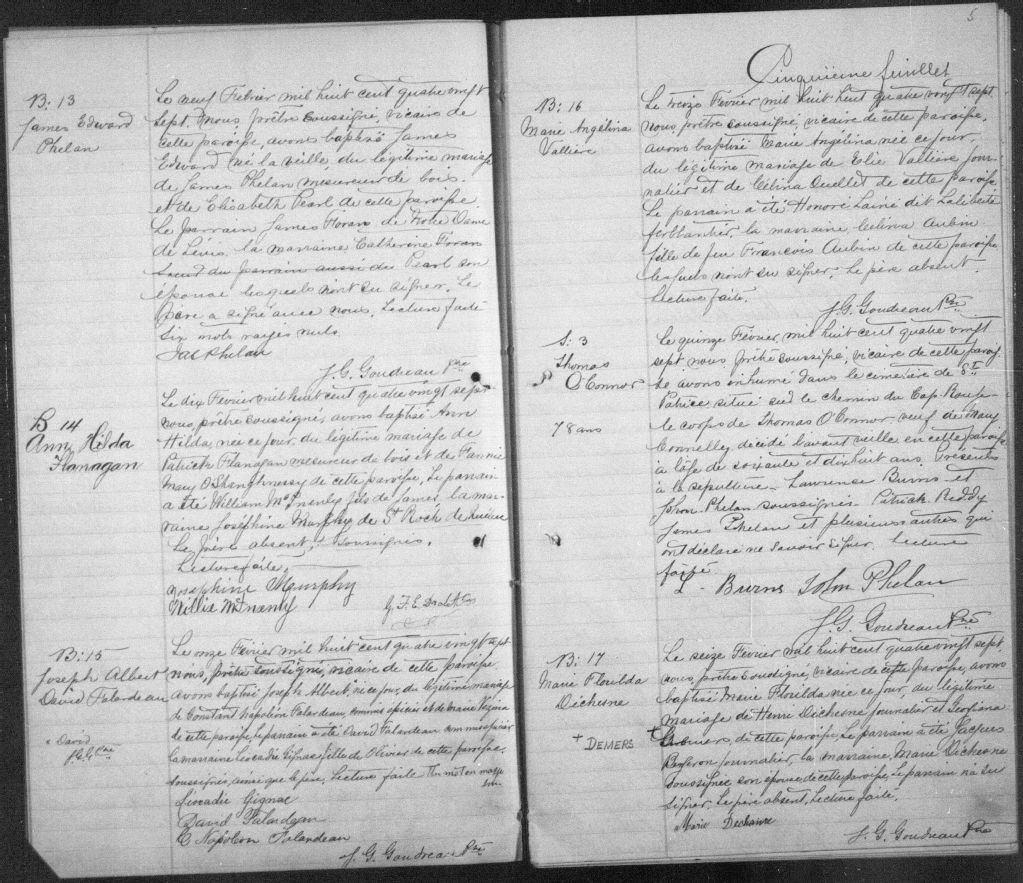 B: 13
James Edward
Phelan
Le neuf Fevrier mil huit cent quatre vingt
sept. Nous prêtre soussigné, vicaire de
cette paroisse, avons baptisé James
Edward né la veille, du légitime mariage
de James Phelan mesureur de bois.
et de Elisabeth Pearl de cette paroisse
Le parrain James Foran de Notre Dame
de Lévis la marraine Catherine Foran
soeur du parrain aussi de Pearl son
épouse lesquels n'ont su signer. Le
père a signé avec nous. Lecture faite
Six mots rayés nuls.
Jas Phelan
J. G. Goudreau Ptre
B 14
Ann Hilda
Flanagan
Le dix Fevrier mil huit cent quatre vingt sept
nous, prêtre soussigné, avons baptisé Ann
Hilda, née ce jour du légitime mariage de
Patrick Flanagan mesureur de bois et de Fannie
Mary O'Shaughnessy de cette paroisse. Le parrain
a été William McInenly fils de James la mar-
raine Josephine Murphy de St Roch de Québec
Le père absent. Soussignés.
Lecture faite.
Josephine Murphy
Willie McInenly
B: 15
Joseph Albert
David Falardeau
Le onze Fevrier mil huit cent quatre vingt sept
nous, prêtre soussigné, vicaire de cette paroisse
avons baptisé Joseph Albert, né ce jour, du légitime mariage
de Constant Napoléon Falardeau, commis épicier et de Marie
de cette paroisse, le parrain a été David Falardeau commis épicier
la marraine Leocadie Gignac fille de Olivier de cette paroisse
soussignés, ainsi que le père, Lecture faite Un mot en marge
bon.
+ David
J.G.G. Ptre
Liocadie Gignac
David Falardeau
C Napoléon Falardeau
J. G. Goudreau Ptre
5
Cinquième feuillet
B: 16
Marie Angélina
Vallière
Le treize Février mil huit cent quatre vingt sept
nous, prêtre soussigné, vicaire de cette paroisse,
avons baptisé Marie Angélina née ce jour,
du légitime mariage de Elie Vallière jour-
nalier et de Célina Ouellet de cette paroisse
Le parrain a été Honoré Lainé dit Laliberté
ferblantier, la marraine Célina Aubin
fille de feu Francois Aubin de cette paroisse
lesquels n'ont su signer. Le père absent.
Lecture faite.
J. G. Goudreau Ptre
S: 3
Thomas
O'Connor
78 ans
Le quinze Février, mil huit cent quatre vingt
sept, nous prêtre soussigné, vicaire de cette parois-
se avons inhumé dans le cimetière de St
Patrice situé sud le chemin du Cap Rouge
le corps de Thomas O'Connor veuf de Mary
Connelly, décédé l'avant veille en cette paroisse
à l'âge de soixante et dixhuit ans. Présents
à la sépulture. Lawrence Burns et
John Phelan soussignés. Patrick Reddy
James Phelan et plusieurs autres qui
ont déclaré ne savoir signer. Lecture
faite
L. Burns John Phelan
J. G. Goudreau Ptre
B: 17
Marie Florilda
Dechesne
+ DEMERS
Le seize Février mil huit cent quatre vingt sept,
nous, prêtre soussigné, vicaire de cette paroisse, avons
baptisé Marie Florilda née ce jour, du légitime
mariage de Henri Dechesne journalier et Georgiana
de cette paroisse, Le parrain a été Jacques
journalier, la marraine, Marie Dechesne
soussignée son épouse de cette paroisse, Le parrain n'a su
signer. Le père absent, Lecture faite.
Marie Dechaine
J. G. Goudreau Ptre